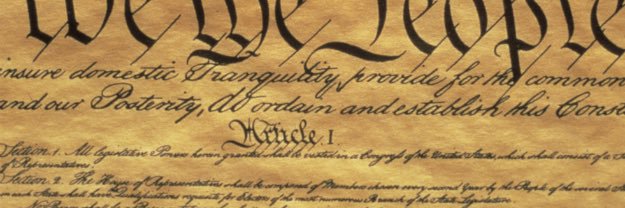 We the People
insure domestic Tranquility, provide for the common
and our Posterity, do ordain and establish this Const
Article. I
Section. 1. All legislative Powers herein granted shall be vested in a Congress of the United States, which shall consist of a
of Representatives.
Section. 2. The House of Representatives shall be composed of Members chosen every second Year by the People of the several
in each State shall have Qualifications requisite for Electors of the most numerous Branch of the State Legislature.
No Person shall be